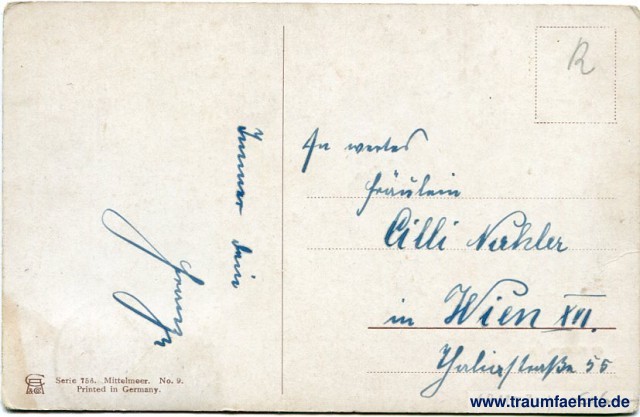 Immer Dein
Franz
R
An wertes
Fräulein
Cilli Nechler
in Wien XVI.
Thaliastraße 55
Serie 754. Mittelmeer. No. 9.
Printed in Germany.
www.traumfaehrte.de